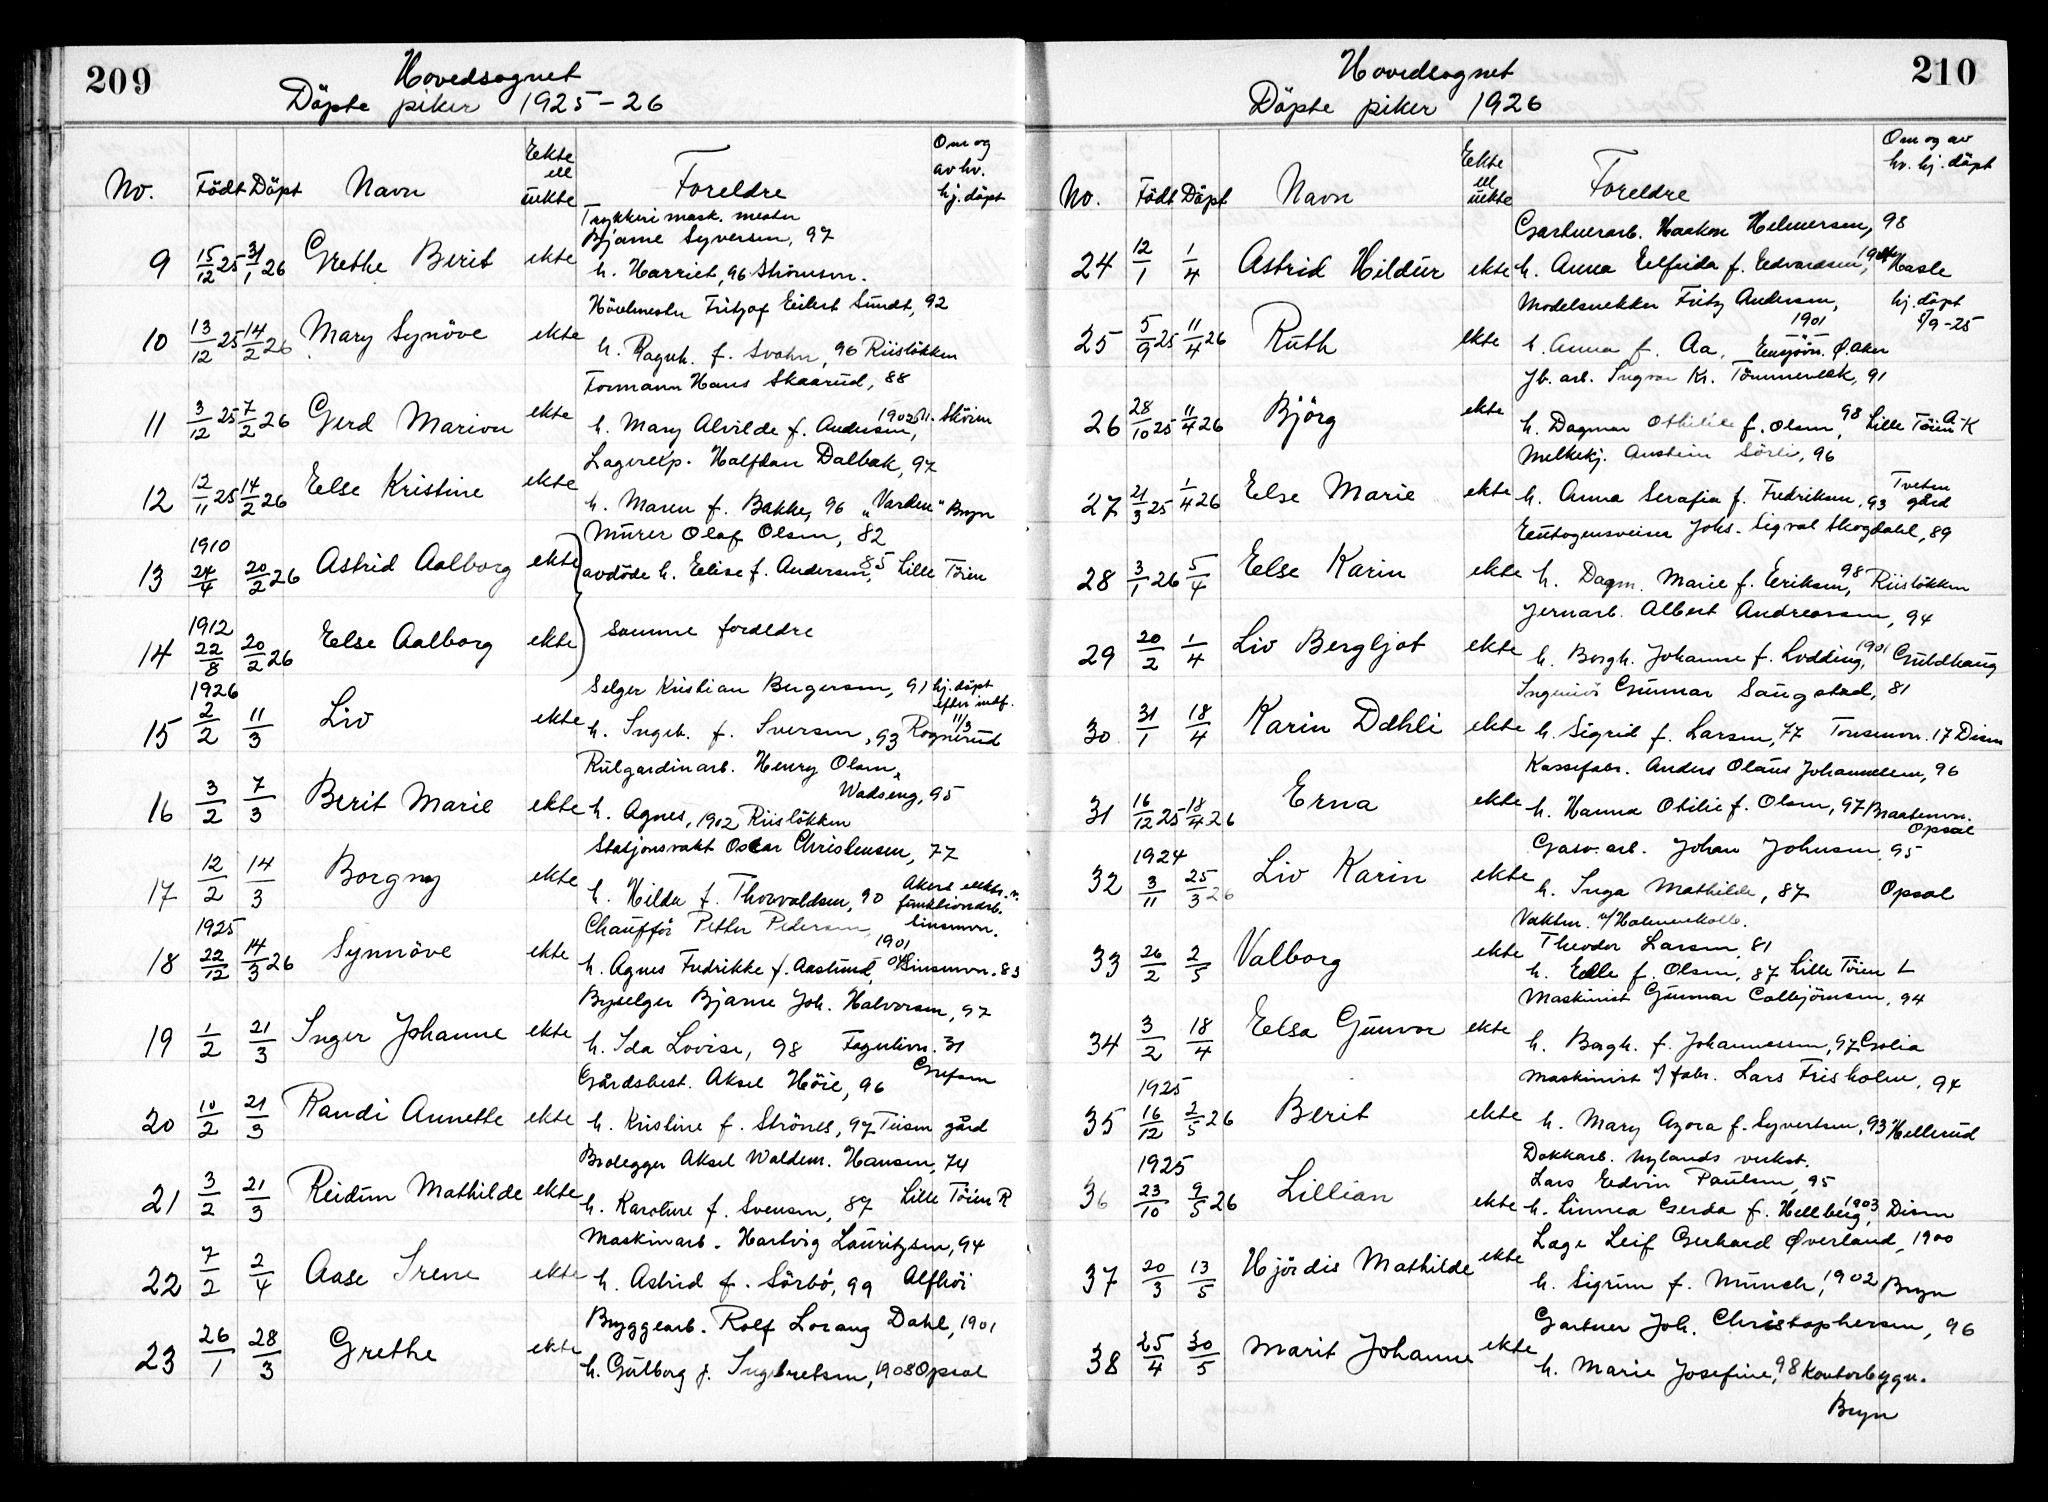 209
Hovedsognet
Döpte piker 1925-26
No. Födt Döpt Navn Ekte ell uekte Foreldre Om og av hv. hj. döpt
Trykkerimask. mester
Bjarne Syversen, 97
9 15/12 25 31/1 26 Grethe Berit ekte h. Harriet, 96 Strömsvn.
Hövlmester Fritjof Eilert Sundt, 92
10 13/12 25 14/2 26 Mary Synöve ekte
h. Ragnh. f. Svahn, 96 Riislökken
Formann Hans Skaarud, 88
11 3/12 25 7/2 26 Gerd Marion ekte
h. Mary Alvilde f. Andersen, 1902
Lagerexp. Halfdan Dalbak, 97
12 12/11 25 14/2 26 Else Kristine ekte
h. Maren f. Bakke, 96 "Varden" Bryn
Murer Olaf Olsen, 82
13 1910 24/4 20/2 26 Astrid Aalborg ekte avdöde h. Elise f. Andersen, 85, Lille Töien
14 1912 22/8 20/2 26 Else Aalborg ekte samme foreldre
Selger Kristian Bergersen, 91 hj. döpt
efter innf.
15 1926 2/2 11/3 Liv ekte h. Ingeb. f. Iversen, 93 Rognerud 11/3
Rulgardinarb. Henry Olsen,
Wadseng, 95
16 3/2 7/3 Berit Marie ekte h. Agnes, 1902 Riislökken
Stasjonsvakt Oscar Christensen, 77
17 12/2 14/3 Borgny ekte h. Hilda f. Thorvaldsen, 90 Akers elektr.
funktionärb.
Chaufför Petter Pedersen, 1901
18 1925 22/12 14/3 26 Synnöve ekte
h. Agnes Fredrikke f. Aaslund, 83
Byselger Bjarne Joh. Halvorsen, 97
19 1/2 21/3 Inger Johanne ekte
h. Ida Lovise, 98 Fagerlivn. 31
Grefsen
Gårdsbest. Aksel Höie, 96
20 10/2 21/3 Randi Annette ekte
h. Kristine f. Strönes, 97 Teisen gård
Brolegger Aksel Waldem. Hansen, 74
21 3/2 21/3 Reidun Mathilde ekte
h. Karoline f. Svensen, 87 Lille Töien R
Maskinarb. Hartvig Lauritzsen, 94
22 7/2 2/4 Aase Irene ekte h. Astrid f. Sörbö, 99 Alfhöi
Bryggearb. Rolf Lorang Dahl, 1901
23 26/1 28/3 Grethe ekte
h. Gulborg f. Ingebretsen, 1908 Opsal
210
Hovedsognet
Döpte piker 1926
No. Födt Döpt Navn Ekte ell uekte Foreldre Om og av hv. hj. döpt
Gartnerarb. Haakon Helmersen, 98
24 12/1 1/4 Astrid Hildur ekte h. Anna Elfrida f. Edvardsen, Hasle
Modelsnekker Fritz Andersen, hj. döpt
1901 5/9-25
25 5/9 25 11/4 26 Ruth ekte h. Anna f. Aa, Ensjövn. Ø. Aker
Jb. arb. Ingvar Kr. Tömmerekk, 91
26 28/10 25 11/4 26 Björg ekte
h. Dagmar Othilie f. Olsen, 98 Lille Töien A-K
Melkekj. Austein Sörli, 96
27 21/3 25 1/4 26 Else Marie ekte h. Anna Serafia f. Fredriksen, 93 Tveten gård
Eutogensveiser Johs. Sigval Skogdahl, 89
28 3/1 26 5/4 Else Karin ekte h. Dagm. Marie f. Eriksen, 98 Riislökken
Jernarb. Albert Andreassen, 94
29 20/2 1/4 Liv Bergljot ekte
h. Borgh. Johanne f. Lodding, 1901 Guldhaug
Ingeniör Gunnar Saugstad, 81
30 31/1 18/4 Karin Dæhli ekte h. Sigrid f. Larsen, 77 Tonsenvn. 17 Disen
Kassefabr. Anders Olaus Johannesen, 96
31 16/12 25 18/4 26 Erna ekte h. Hanna Otilie f. Olsen, 97 Braatenvn.
Opsal
Gasv. arb. Johan Johnsen, 95
32 1924 3/11 25/3 26 Liv Karin ekte
h. Inga Mathilde, 87 Opsal
Vaktm. v/Holmenkolb.
33 26/2 2/5 Valborg ekte Theodor Larsen, 81
h. Elle f. Olsen, 87 Lille Töien L
Maskinist Gunnar Colbjörnsen, 94
34 3/2 18/4 Elsa Gunvor ekte
h. Borgh. f. Johannessen, 97 Golia
Maskinist v/ fabr. Lars Frisholm, 94
35 1925 16/12 2/5 26 Berit ekte
h. Mary Azora f. Syvertsen, 93 Hellerud
Dokkarb. Nylands verkst.
Lars Edvin Paulsen, 95
36 1925 23/10 9/5 26 Lillian ekte h. Linnea Gerda f. Hellberg, 1903, Disen
Lage Leif Gerhard Øverland, 1900
37 20/3 13/5 Hjördis Mathilde ekte
h. Sigrun f. Munch, 1902 Bryn
Gartner Joh. Christophersen, 96
38 25/4 30/5 Marit Johanne ekte
h. Marie Josefine, 98 Kontorbygn.
Bryn